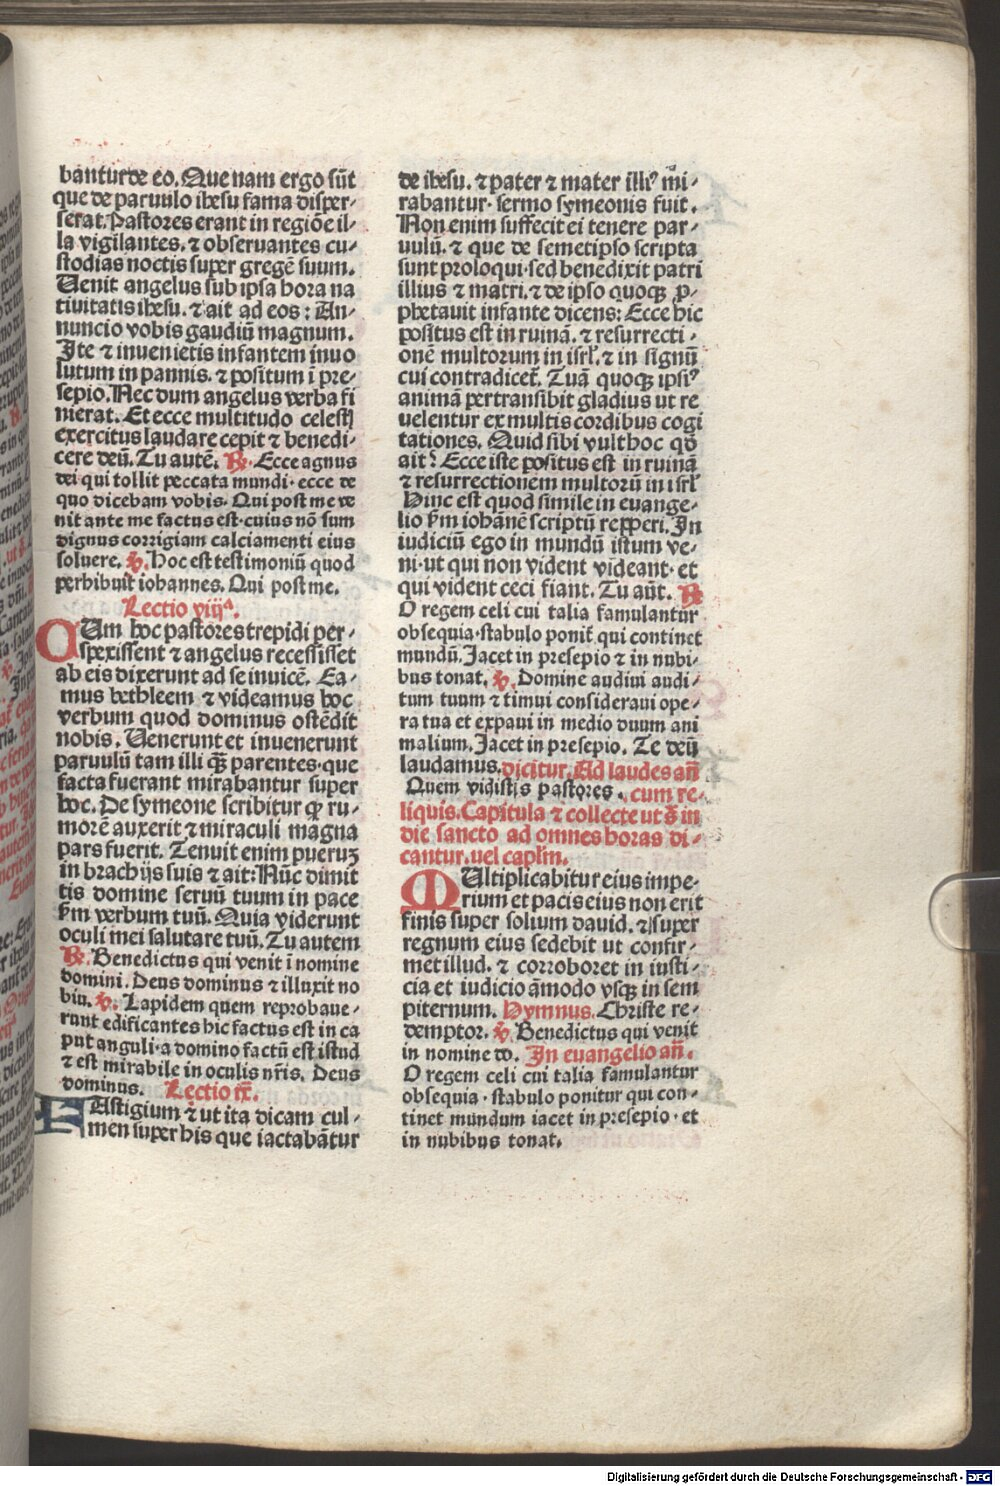 banturde eo. Que nam ergo sūt
que de paruulo ihesu fama disper-
serat. Pastores erant in regiōe il-
la vigilantes. ⁊ obseruantes cu-
stodias noctis super gregē suum.
Uenit angelus sub ipsa hora na
tiuitatis ihesu. ⁊ ait ad eos: An-
nuncio vobis gaudiū magnum.
Ite ⁊ inuenietis infantem inuo
lutum in pannis. ⁊ positum ī pre-
sepio. Nec dum angelus verba fi
nierat. Et ecce multitudo celestꝭ
exercitus laudare cepit ⁊ benedi-
cere deū. Tu autē. ℟. Ecce agnus
dei qui tollit peccata mundi· ecce de
quo dicebam vobis. Qui post me ve
nit ante me factus est· cuius nō sum
dignus corrigiam calciamenti eius
soluere. ℣. Hoc est testimoniū quod
perhibuit iohannes. Qui post me.
Lectio viijᵃ.
CUm hoc pastores trepidi per-
spexissent ⁊ angelus recessisset
ab eis dixerunt ad se inuicē. Ea-
mus bethleem ⁊ videamus hoc
verbum quod dominus ostēdit
nobis. Uenerunt et inuenerunt
paruulū tam illi qꝫ parentes· que
facta fuerant mirabantur super
hoc. De symeone scribitur ꝙ ru-
morē auxerit ⁊ miraculi magna
pars fuerit. Tenuit enim pueruꝫ
in brachijs suis ⁊ ait: Nūc dimit
tis domine seruū tuum in pace
ẜm verbum tuū. Quia viderunt
oculi mei salutare tuū. Tu autem
℟. Benedictus qui venit ī nomine
domini. Deus dominus ⁊ illuxit no
biu. ℣. Lapidem quem reprobaue-
runt edificantes hic factus est in ca
put anguli· a domino factū est istud
⁊ est mirabile in oculis nr̄is. Deus
dominus. Lectio ix̄.
FAstigium ⁊ ut ita dicam cul-
men super his que iactabātur
de ihesu. ⁊ pater ⁊ mater illiꝰ mi-
rabantur· sermo symeonis fuit.
Non enim suffecit ei tenere par-
uulū. ⁊ que de semetipso scripta
sunt proloqui· sed benedixit patri
illius ⁊ matri. ⁊ de ipso quoqꝫ ꝓ-
phetauit infante dicens: Ecce hic
positus est in ruinā. ⁊ resurrecti-
onē multorum in isrl̄. ⁊ in signū
cui contradicet̄. Tuā quoqꝫ ipsiꝰ
animā pertransibit gladius ut re
uelentur ex multis cordibus cogi
tationes. Quid sibi vult hoc qd̄
ait? Ecce iste positus est in ruinā
⁊ resurrectionem multorū in isrl̄
Hinc est quod simile in euange-
lio ẜm iohānē scriptū repperi. In
iudiciū ego in mundū istum ve-
ni· ut qui non vident videant· et
qui vident ceci fiant. Tu aūt. ℟
O regem celi cui talia famulantur
obsequia· stabulo ponit̄ qui continet
mundū. Jacet in presepio ⁊ in nubi-
bus tonat. ℣. Domine audiui audi-
tum tuum ⁊ timui consideraui ope-
ra tua et expaui in medio duum ani
malium. Jacet in presepio. Te deū
laudamus. dicitur. Ad laudes an̄
Quem vidistis pastores. cum re-
liquis. Capitula ⁊ collecte ut s̄ in
die sancto ad omnes horas di-
cantur. uel capl̄m.
MUltiplicabitur eius impe-
rium et pacis eius non erit
finis super solium dauid. ⁊ super
regnum eius sedebit ut confir-
met illud. ⁊ corroboret in iusti-
cia et iudicio āmodo vsqꝫ in sem
piternum. Hymnus. Christe re-
demptor. ℣. Benedictus qui venit
in nomine do. In euangelio an̄.
O regem celi cui talia famulantur
obsequia· stabulo ponitur qui con-
tinet mundum iacet in presepio· et
in nubibus tonat.
Digitalisierung gefördert durch die Deutsche Forschungsgemeinschaft - DFG